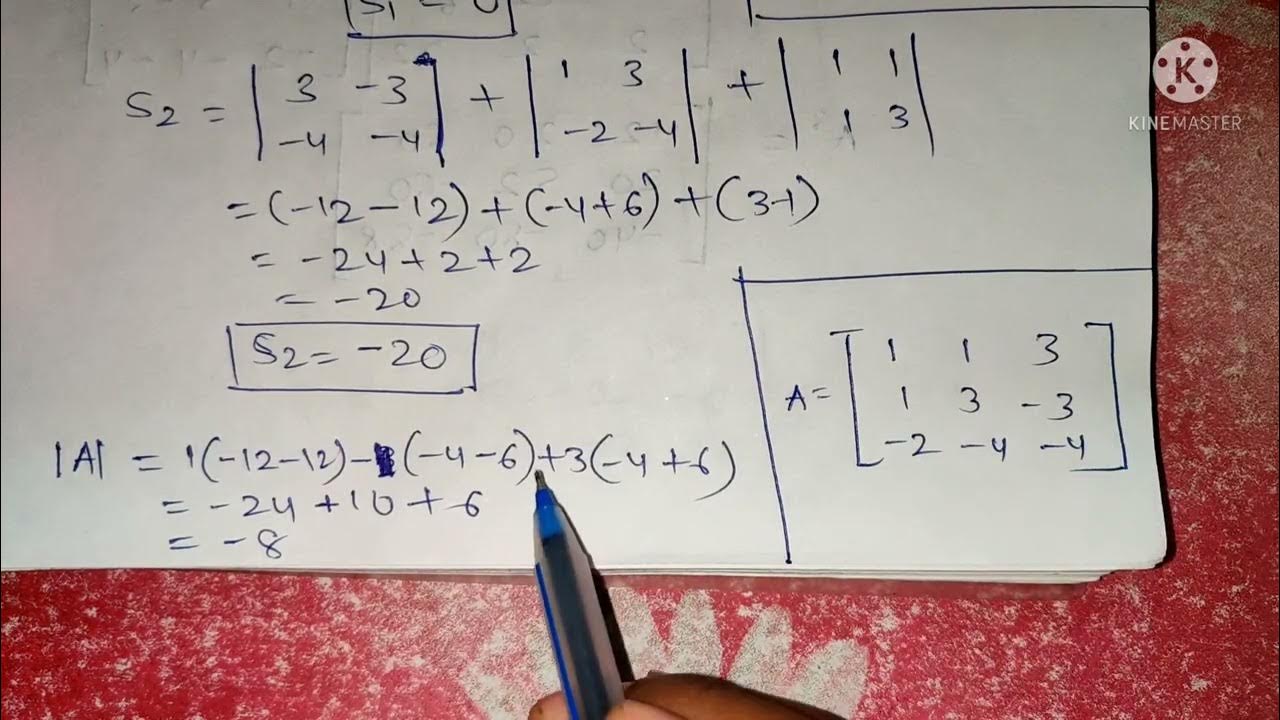 S₁ = 0
S₂ = | 3 -3 | + | 1 3 | + | 1 1 |
| -4 -4 | | -2 -4 | | 1 3 |
= (-12-12) + (-4+6) + (3-1)
= -24+2+2
= -20
S₂ = -20
|A| = 1(-12-12)-1(-4-6)+3(-4+6)
= -24+10+6
= -8
A = [ 1 1 3
1 3 -3
-2 -4 -4 ]
K
KINEMASTER